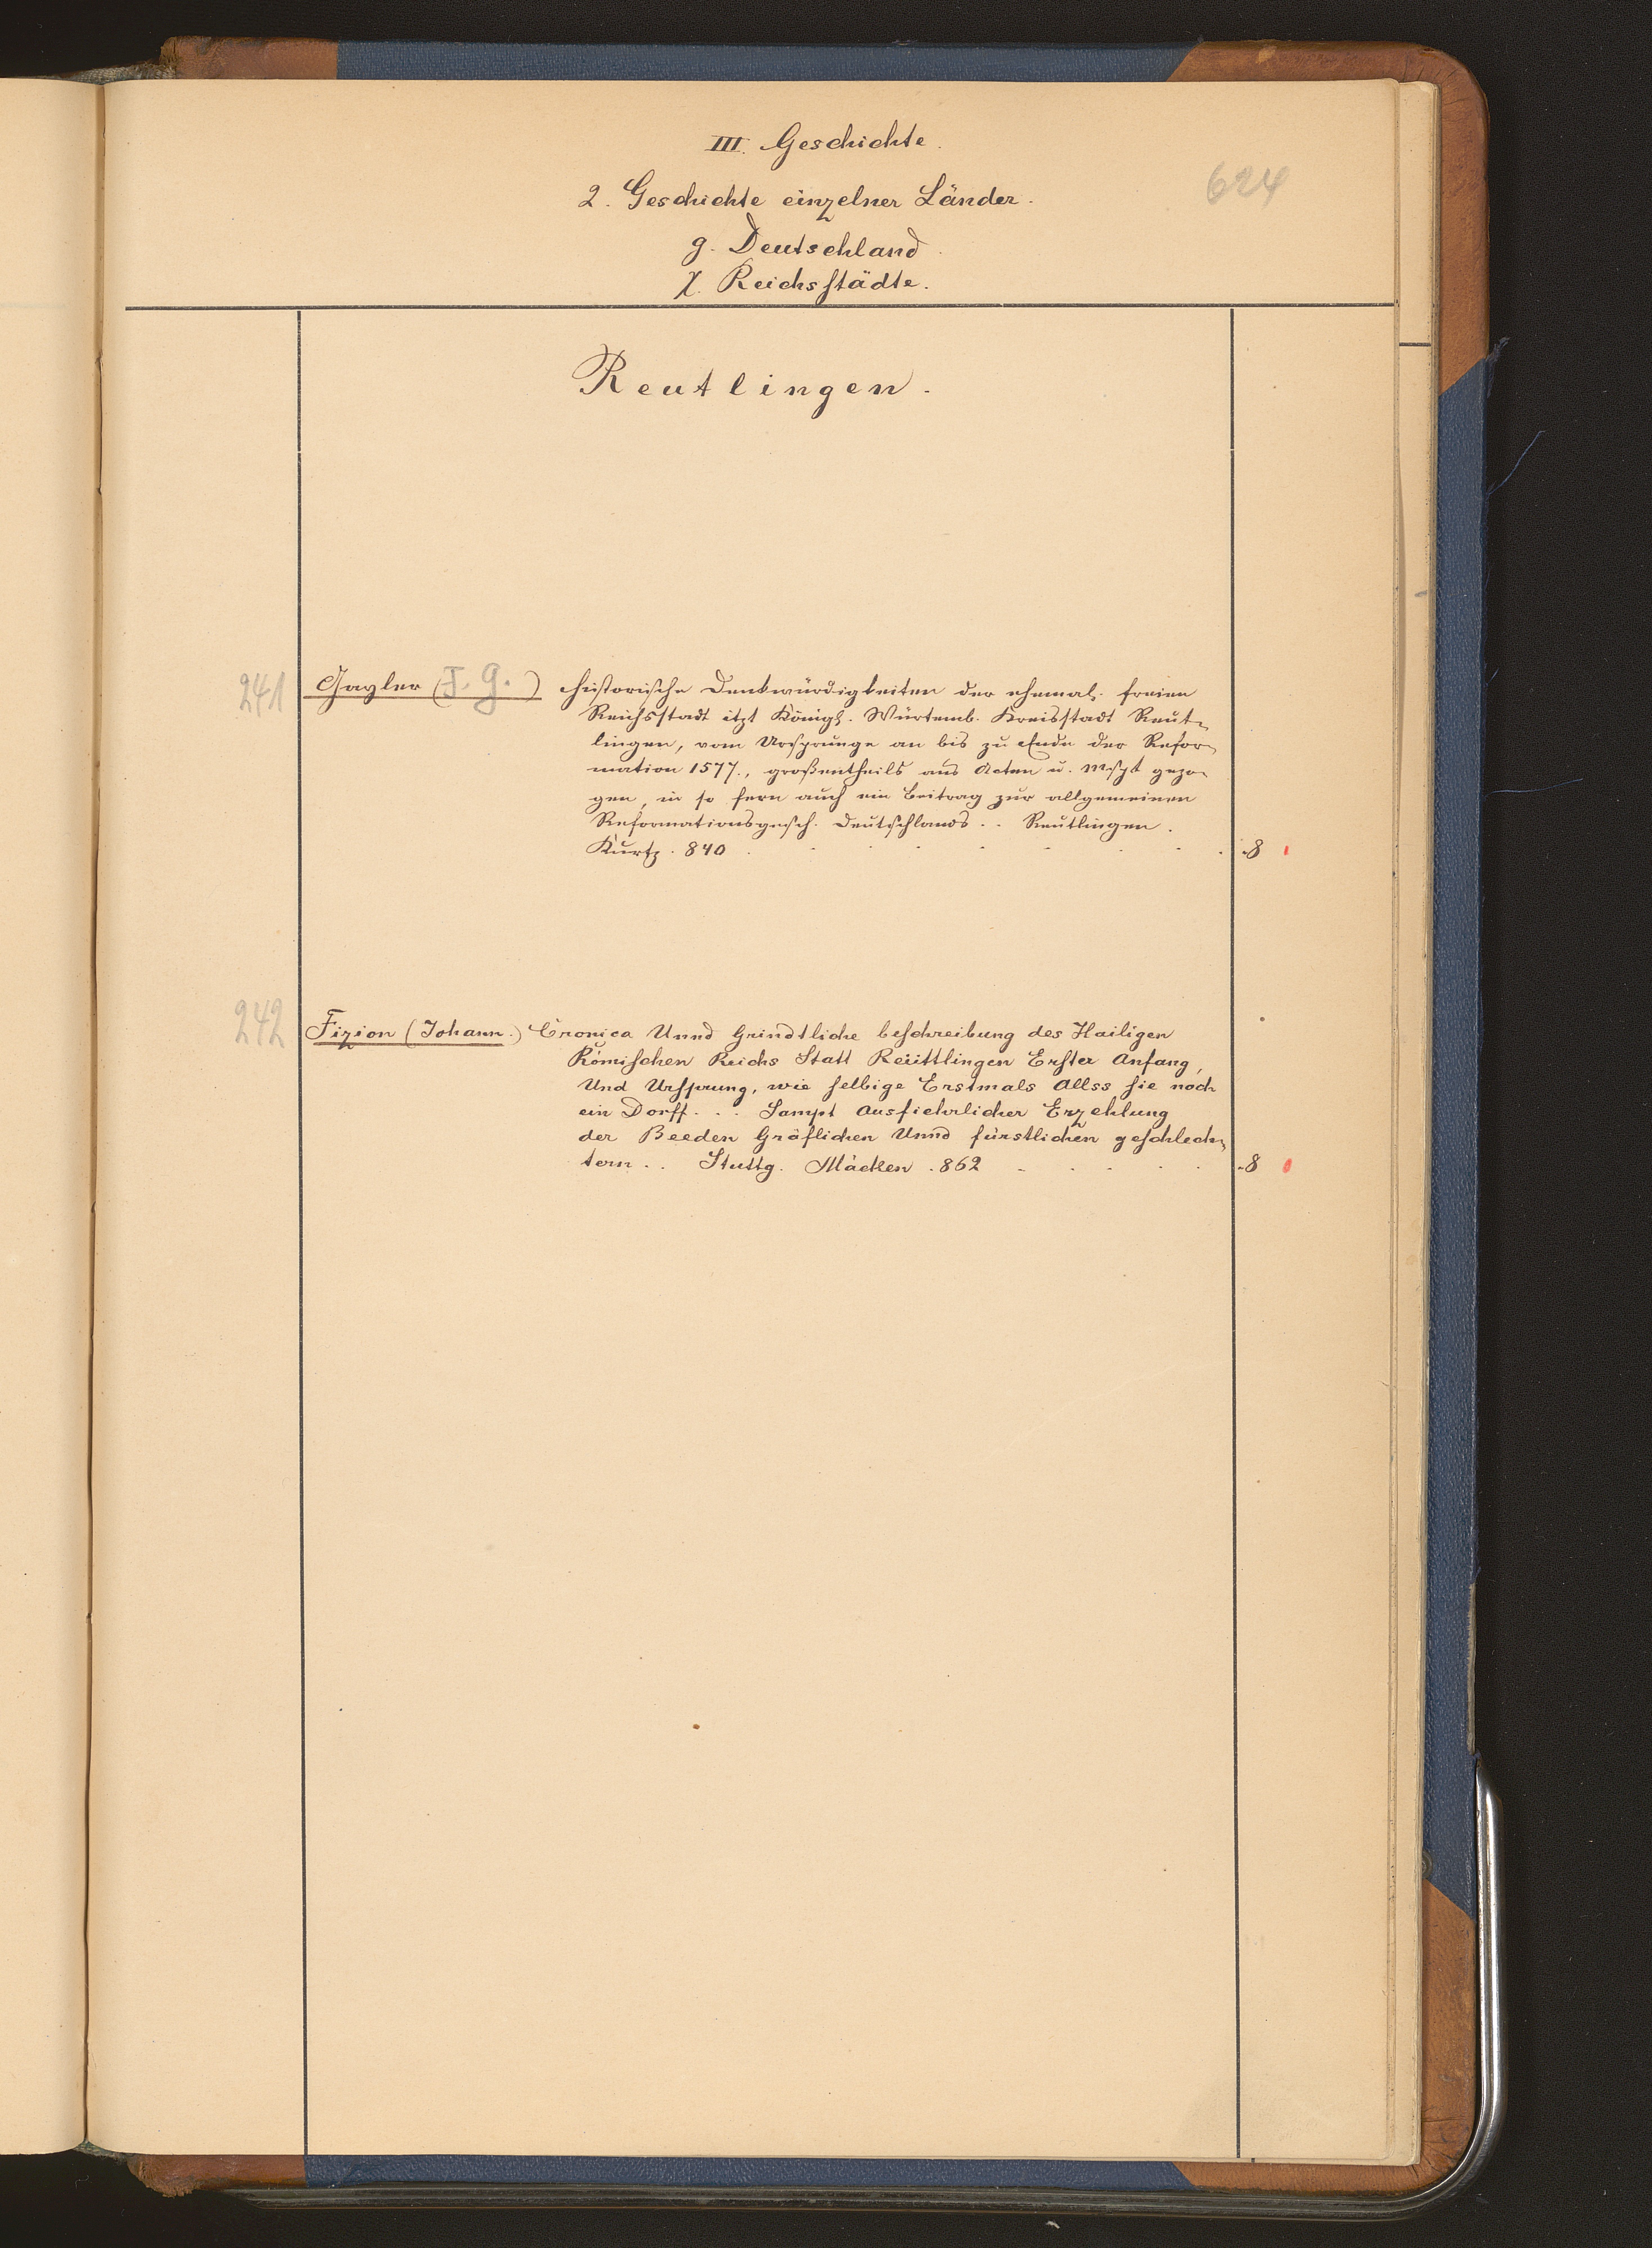 III. Geschichte.
624
2. Geschichte einzelner Länder.
g. Deutschland.
χ. Reichsstädte.
Reutlingen.
241 Gayler (F. G.) historische Denkwürdigkeiten der ehemal. freien
Reichsstadt itzt Königl. Würtemb. Kreisstadt Reut-
lingen, vom Ursprunge an bis zu Ende der Refor-
mation 1577., großentheils aus Acten u. Mscpt gezo-
gen, in so fern auch ein Beitrag zur allgemeinen
Reformationsgesch. Deutschlands . . Reutlingen.
Kurtz. 840 . . . . . . . . . 8
242 Fizion (Johann.) Cronica Unnd Grindtliche beschreibung des Hailigen
Römischen Reichs Statt Reüttlingen Erster Anfang,
Und Ursprung, wie selbige Erstmals Allss sie noch
ein Dorff. . . Sampt Ausfiehrlicher Erzehlung
der Beeden Gräflichen Unnd fürstlichen geschlech-
tern . . Stuttg. Mäcken . 862 . . . . . 8